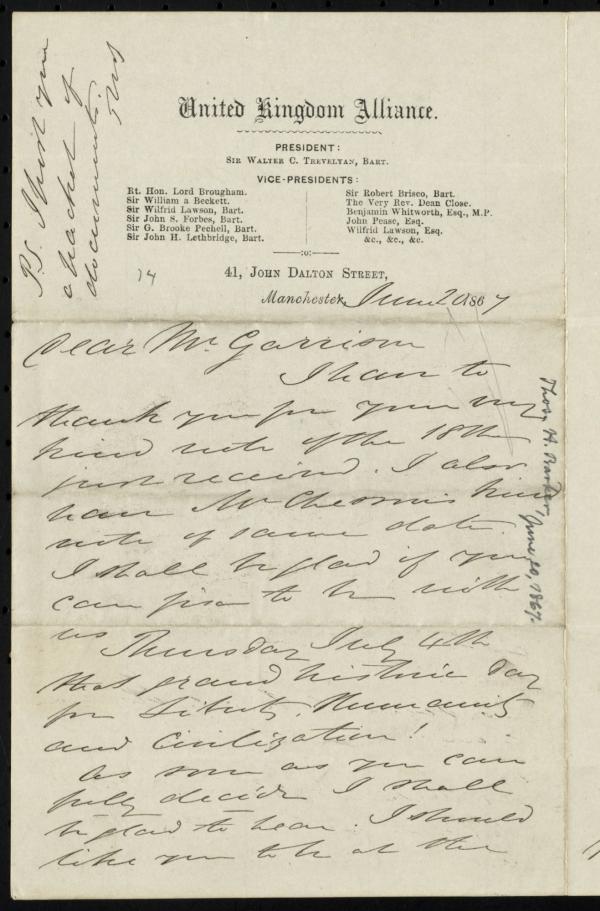 P.S. I post you
a packet of
documents.
United Kingdom Alliance.
PRESIDENT:
SIR WALTER C. TREVELYAN, BART.
VICE-PRESIDENTS:
Rt. Hon. Lord Brougham.
Sir William a Beckett.
Sir Wilfrid Lawson, Bart.
Sir John S. Forbes, Bart.
Sir G. Brooke Pechell, Bart.
Sir John H. Lethbridge, Bart.
Sir Robert Brisco, Bart.
The Very Rev. Dean Close.
Benjamin Whitworth, Esq., M.P.
John Pease, Esq.
Wilfrid Lawson, Esq.
&c., &c., &c.
:o:
41, JOHN DALTON STREET,
Manchester, June 20 1867
Dear Mr. Garrison
I have to
thank you for your very
kind note of the 18th
just received. I also
have Mr Chesson's kind
note of same date.
I shall be glad if you
can fix to be with
us Thursday July 4th
that grand historic day
for Liberty, Humanity
and Civilization!
As soon as you can
fully decide I shall
be glad to hear. I should
like you to be at the
Thos. H. Barker, June 20, 1867.